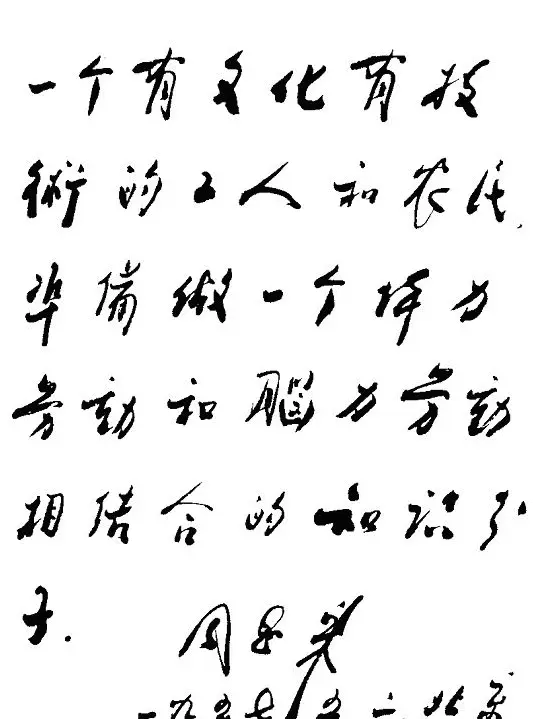 一个有文化有技
術的工人和农民,
準備做一个体力
劳動和腦力劳動
相结合的知識分
子.
周恩来
一九五七,五,二,北京